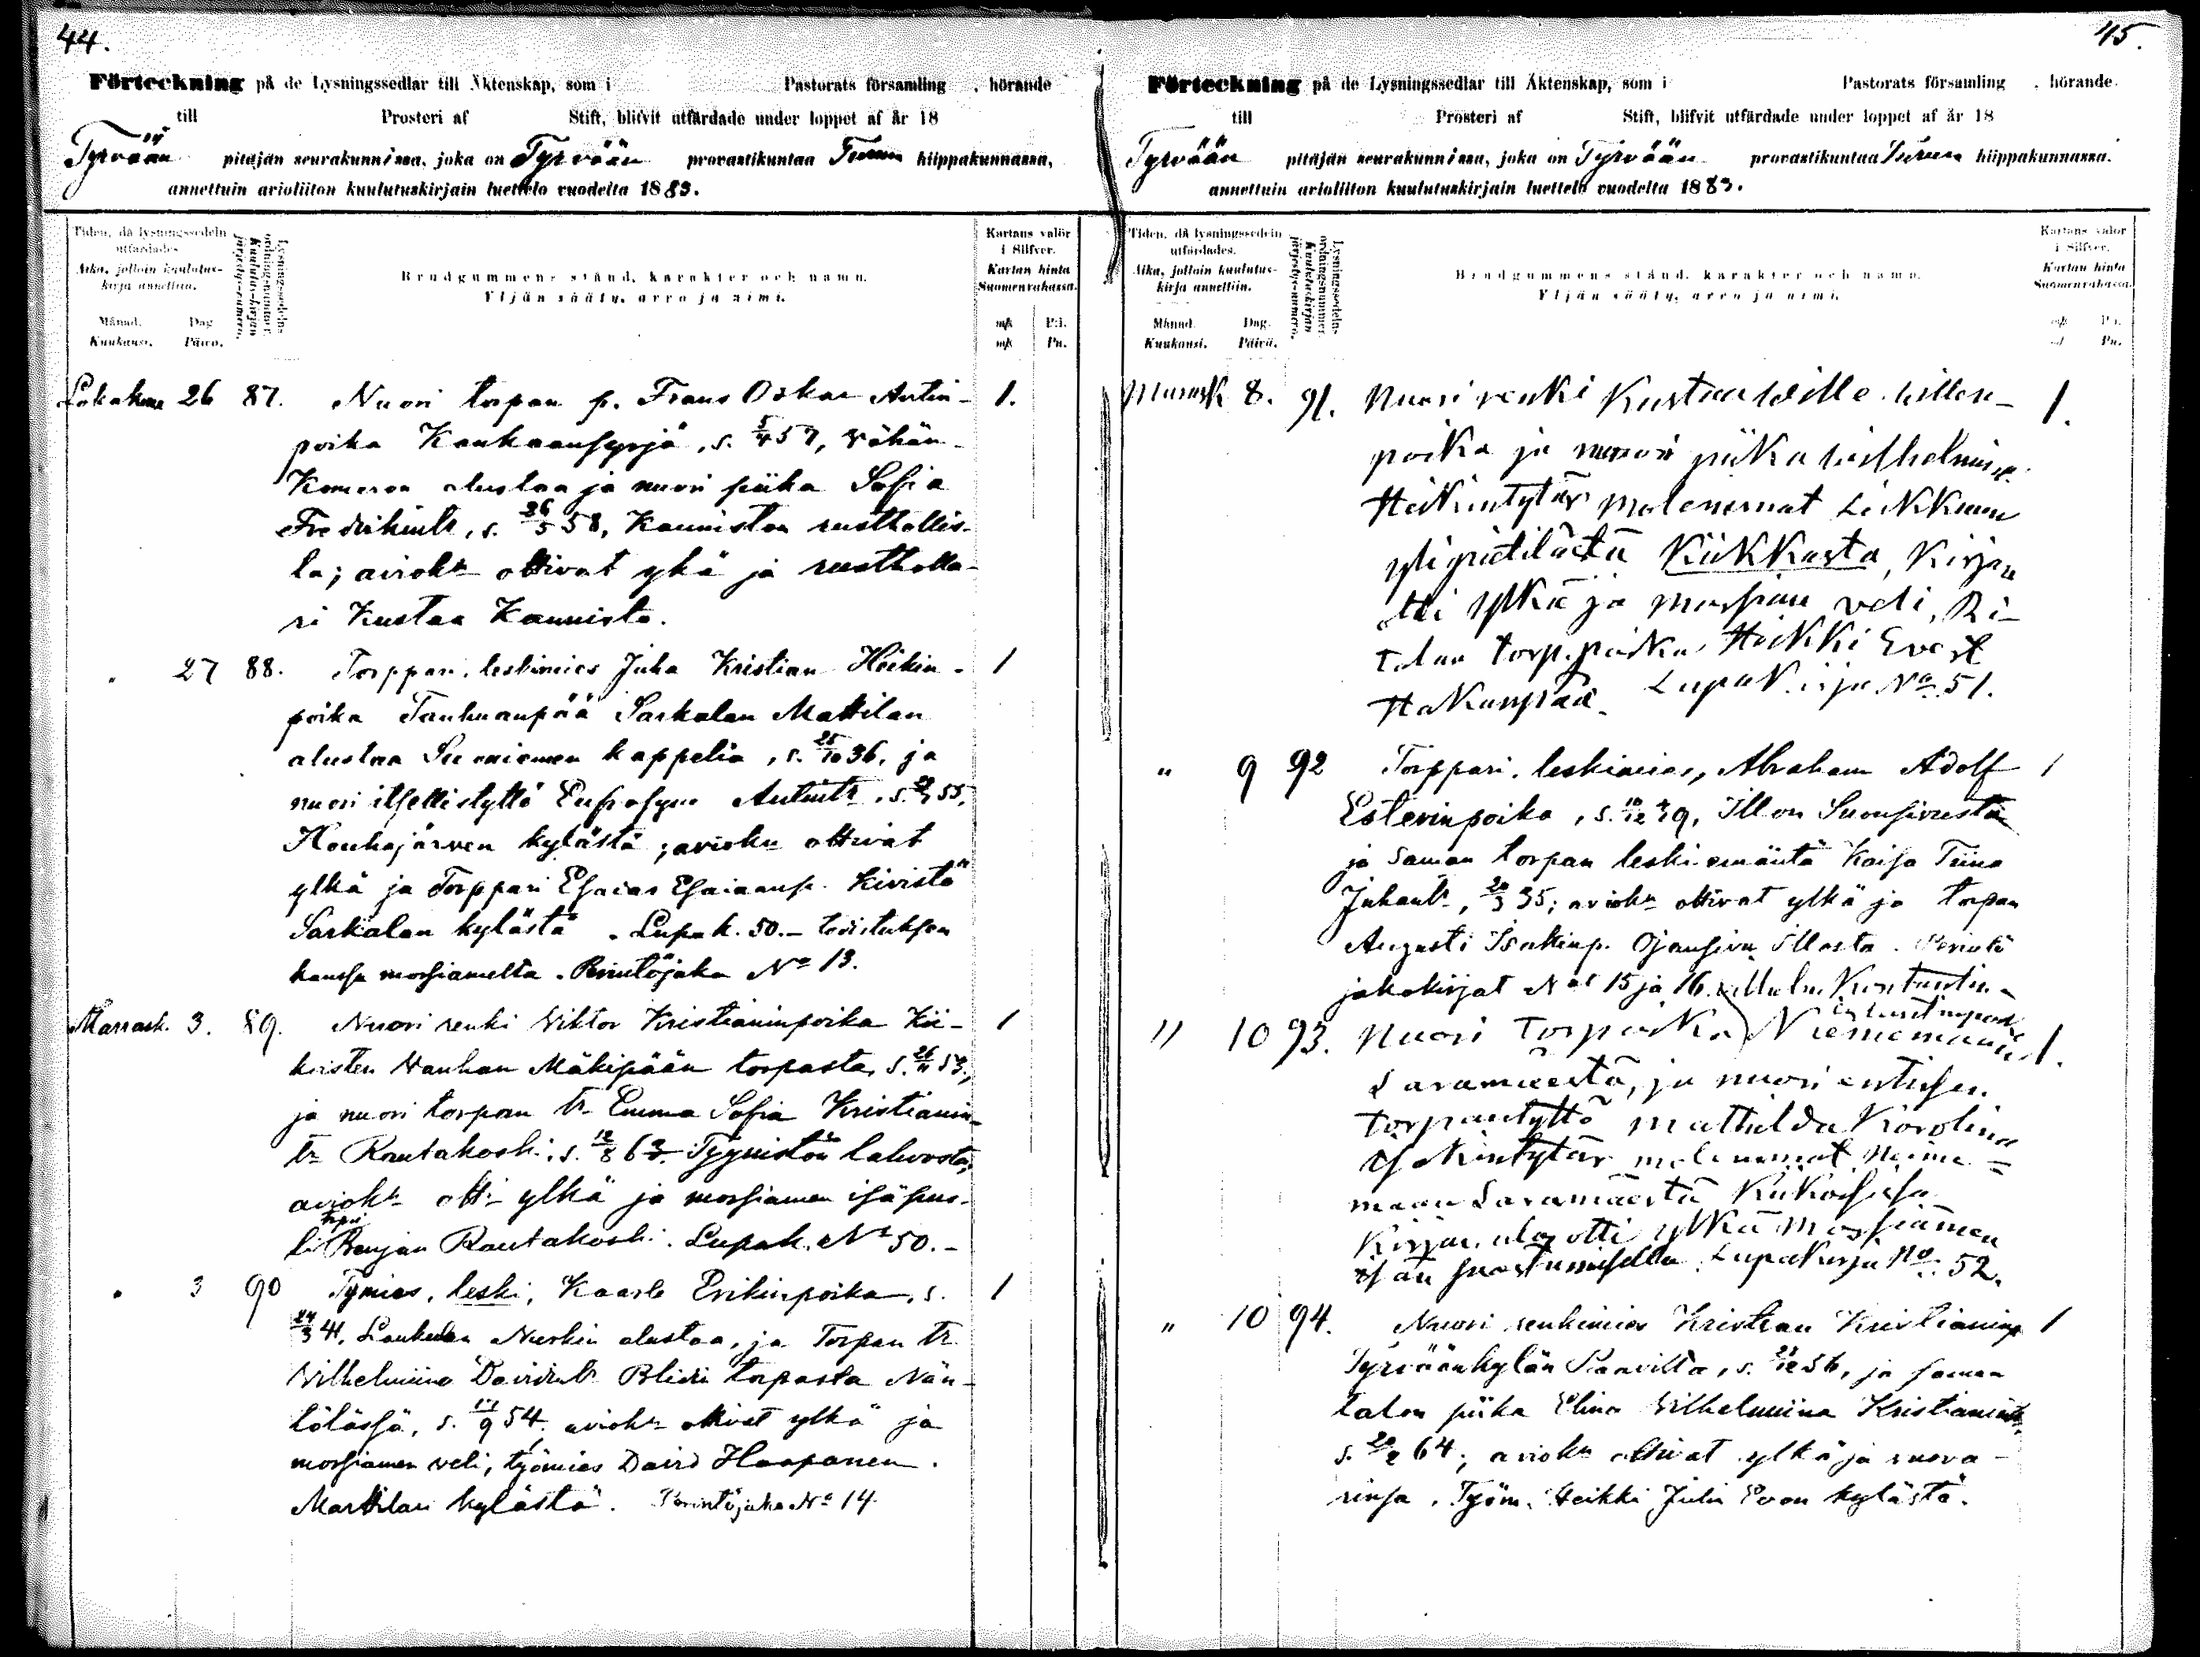 44.
Förteckning på de Lysningssedlar till Äktenskap, som i Pastorats församling , hörande
till Prosteri af Stift, blifvit utfärdade under loppet af år 18
Tyrvään pitäjän seurakunnissa, joka on Tyrvään provastikuntaa Turun hiippakunnassa,
annettuin avioliiton kuulutuskirjain luettelo vuodelta 1883.
Tiden, då lysningssedeln utfärdades.
Aika, jolloin kuulutuskirja annettiin.
Månad. Dag
Kuukausi. Päivä.
Lysningssedelns ordningsnummer.
Kuulutuskirjan järjestys-numero.
Brudgummens stånd, karakter och namn.
Yljän sääty, arvo ja nimi.
Kartans valör i Silfver.
Kartan hinta Suomenrahassa.
mk P:i.
mk Pn.
Lokakuu 26 87. Nuori torpan p. Frans Oskar Antin- 1.
poika Kankaansyrjä, s. 5/4 57, Vähän-
Komeron alustaa ja nuori piika Sofia
Fredrikintr, s. 26/5 58, Kanniston rusthollis-
la; avioktr ottivat ylkä ja rustholla-
ri Kustaa Kannisto.
" 27 88. Torppari, leskimies Juha Kristian Heikin- 1
poika Tanhuanpää Sarkalan Mattilan
alustaa Suoniemen kappelia, s. 25/10 36, ja
nuori itsellistyttö Eufrosyne Antintr, s. 55,
Houhajärven kylästä; avioku ottivat
ylkä ja Torppari Esaias Esaianp. Kivistö
Sarkalan kylästä. Lupak. 50.- todistuksen
kanssa morsiamelta. Perintöjako No 13.
Marrask. 3. 89. Nuori renki Viktor Kristianinpoika Kii- 1
koisten Vanhan Mäkipään torpasta, s. 26/11 53,
ja nuori torpan tr Emma Sofia Kristianin-
tr Rautakoski, s. 12/8 63 Tyynistön lahosta,
avioktr otti ylkä ja morsiamen isäpuo-
li torp. Benjam Rautakoski. Lupak. No 50.-
" 3 90 Työmies, leski, Kaarle Erikinpoika, s. 1
24/3 41, Laukulan Nuoskin alustaa, ja Torpan tr
Vilhelmiina Davidintr Blidin torpasta Nän-
tölässä, s. 17/9 54, avioktr ottivat ylkä ja
morsiamen veli, työmies David Haapanen.
Marttilan kylästä. Perintöjako No 14
45.
Förteckning på de Lysningssedlar till Äktenskap, som i Pastorats församling , hörande.
till Prosteri af Stift, blifvit utfärdade under loppet af år 18
Tyrvään pitäjän seurakunnissa, joka on Tyrvään provastikuntaa Turun hiippakunnassa.
annettuin avioliiton kuulutuskirjain luettelo vuodelta 1883.
Tiden, då lysningssedeln utfärdades.
Aika, jolloin kuulutuskirja annettiin.
Månad. Dag.
Kuukausi. Päivä.
Lysningssedelns ordningsnummer.
Kuulutuskirjan järjestys-numero.
Brudgummens stånd, karakter och namn.
Yljän sääty, arvo ja nimi.
Kartans valör i Silfver.
Kartan hinta Suomenrahassa.
mk P:i.
mk Pn.
Marrask 8. 91. Nuori renki Kustaa Wille Willen- 1.
poika ja nuori piika Wilhelmina
Heikintytär molemmat Leikkuun
yksityistilästä Kiikkasta, Kirjan
otti ylkä ja morsian veli, Ri-
talan torp. poika Heikki Evert
Hakanpää. Lupakirja No 51.
" 9 92 Torppari, leskimies, Abraham Adolf 1
Esterinpoika, s. 10/12 29, Illon Suonsivusta
ja saman torpan leski emäntä Kaisa Tiina
Juhantr, 20/3 35; avioktr ottivat ylkä ja torpan
Augusti Isakinp. Ojansivu Illosta. Perintö
jakokirjat Not 15 ja 16.
" 10 93. Nuori torp poika Niemenmaan 1.
Saramäestä, ja nuori entisen
torpantyttö Mathilda Karolina
Isakintytär molemmat Niemen-
maan Saramäestä Kiikoisissa
Kirjan ulos otti ylkä morsiamen
isän suostumisella. Lupakirja No 52.
" 10 94. Nuori renkimies Kristian Kristianinp 1
Tyrväänkylän Paavilta, s. 56, ja saman
talon piika Elina Vilhelmiina Kristianintr,
s. 64; avioktr ottivat ylkä ja vava-
rinsa, Työm. Heikki Juha Evon kylästä.